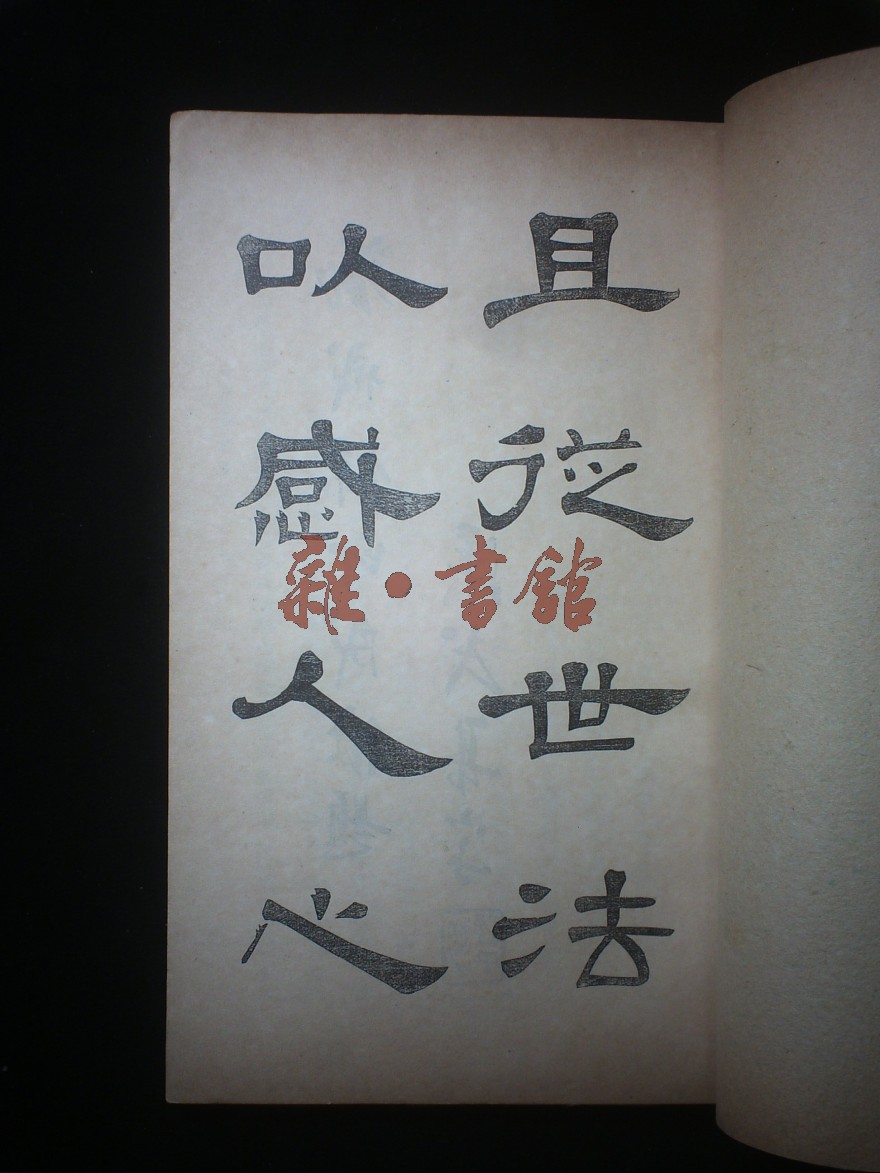 且從世法
以感人心
雜·書館